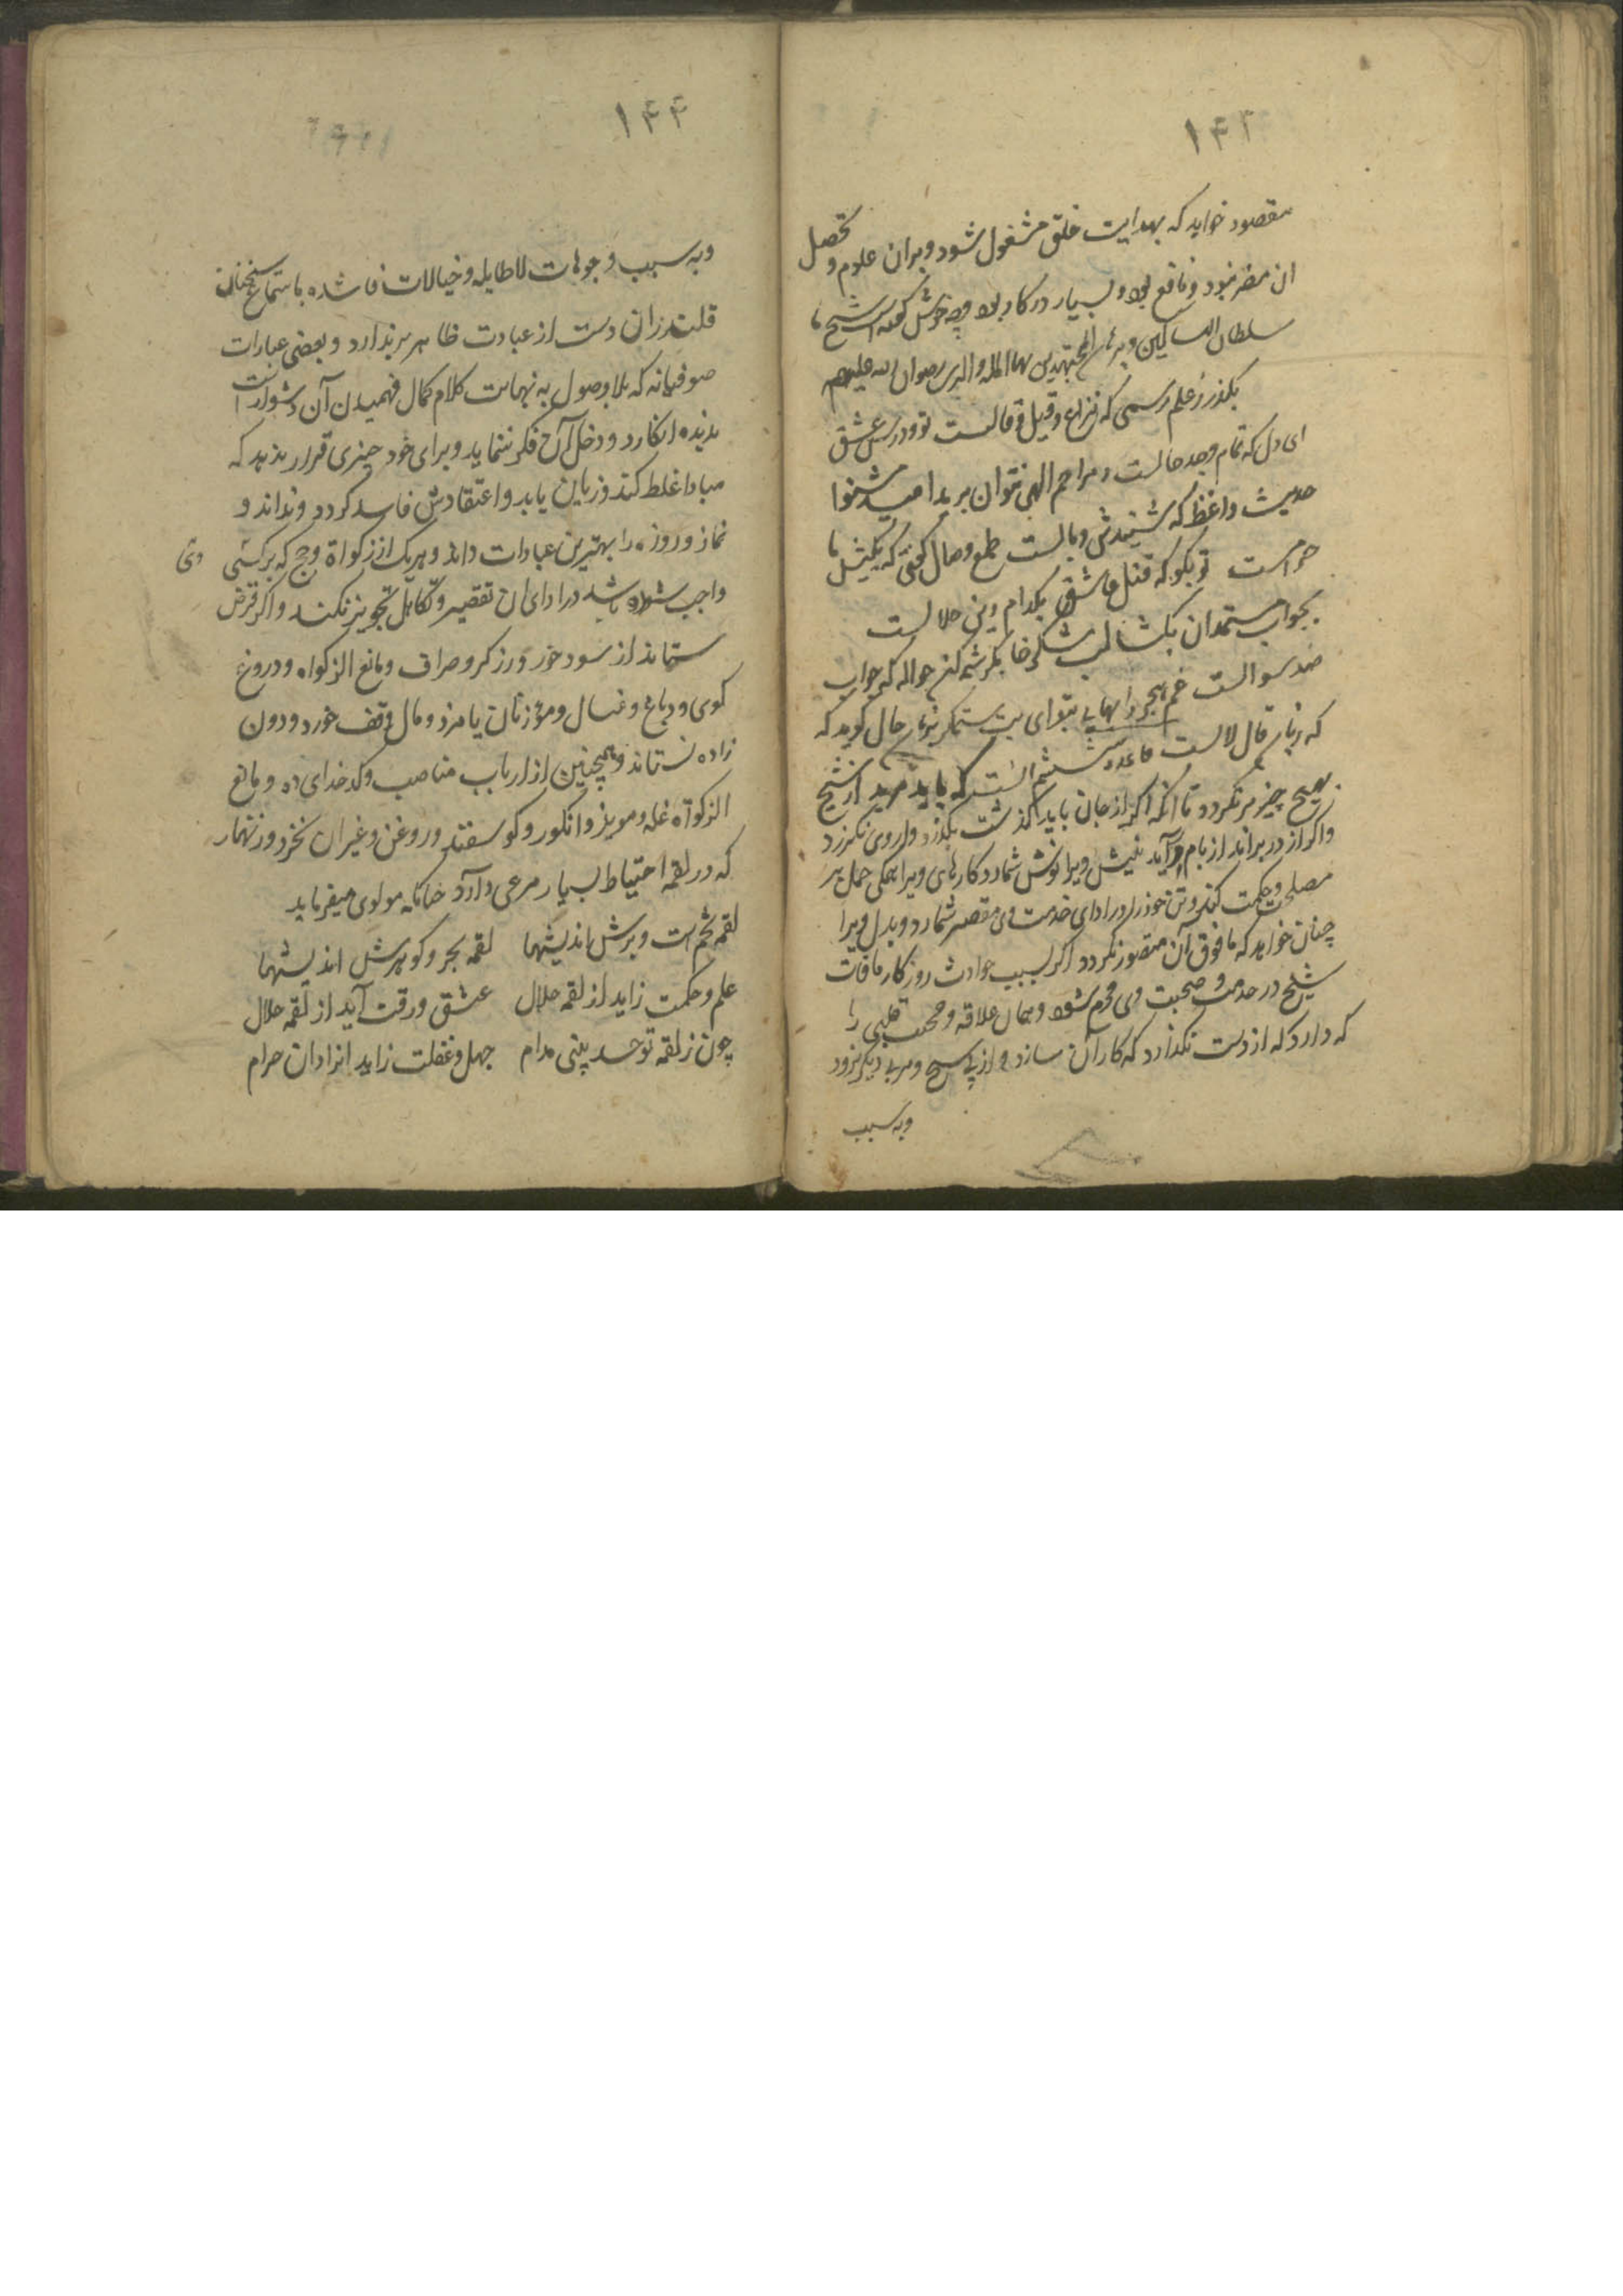 ۱۴۳
مقصود خواهد که بهدایت خلق مشغول شود و بران علوم و تحصیل
ان مضر نبود و نافع بود و بسیار در کار بود و چه خوش گفته شیخ ما
سلطان السالکین و برهان المجتهدین بهاء المله والدین رضوان الله علیهم
بکذر ز علم رسمی که نزاع و قیل و قالست تو و درس عشق
ای دل که تمام وجد حالست ز مراحم الهی نتوان برید امید مشنوا
حدیث واعظ که شنیدنش وبالست طمع وصال کفتی که بکیش ما
حرامست تو بکو که قتل عاشق بکدام دین حلالست
بجواب مستمندان بکشا لب شکرخا بکرشمه کن حواله که جواب
صد سوالست غم هجر را بهایی بتو ای بت ستمکر بزبان حال کوید که
که زبان قال لالست قاعده ششم انست که باید مرید از شیخ
بهیچ چیز برنکردد تا انکه اکر از جان باید کذشت بکذرد و از وی نکذرد
واکر از در براند از بام درآید نیش ویرا نوش شمارد و کارهای ویرا همکی حمل بر
مصلحت و حکمت کند و تن خود را در ادای خدمت وی مقصر شمارد و بدل ویرا
چنان خواهد که ما فوق آن متصور نکردد اکر بسبب حوادث روزکار ما فات
شیخ در خدمت و صحبت وی محرم شود و همان علاقه و محبت قلبی را
که دارد که از دست نکذارد که کار آن سازد و از پی شیخ و مربی دیکر نرود
وبه سبب
۱۴۴
وبه سبب وجوهات لاطایله و خیالات فاسده باستماع سخنان
قلندران دست از عبادت ظاهر برندارد و بعضی عبارات
صوفیانه که بلا وصول به نهایت کلام کمال فهمیدن آن دشوار است
ندیده انکارد و دخل آن فکر ننماید و برای خود چیزی قرار ندهد که
مبادا غلط کند و زیان یابد و اعتقادش فاسد کردد و نداند و
نماز و روزه را بهترین عبادات داند و هریک از زکواة و حج که برکسی
واجب شده باشد در ادای ان تقصیر و تکاهل تجویز نکند و اکر قرض
ستاند از سود خور و زرکر و صراف و مانع الزکواه و دروغ
کوی و دباغ و غسال و موذنان با مزد و مال وقف خورد و دون
زاده نستاند و همچنین از ارباب مناصب و کدخدای ده و مانع
الزکوتاه غله و مویز و انکور و کوسفند و روغن و غیر ان نخرد و زنهار
که در لقمه احتیاط بسیار مرعی دارد چنانکه مولوی میفرماید
لقمه تخم است و برش اندیشها لقمه بحر و کوهرش اندیشها
علم و حکمت زاید از لقمه حلال عشق و رقت آید از لقمه حلال
چون ز لقمه تو حسد بینی مدام جهل و غفلت زاید انرا دان حرام